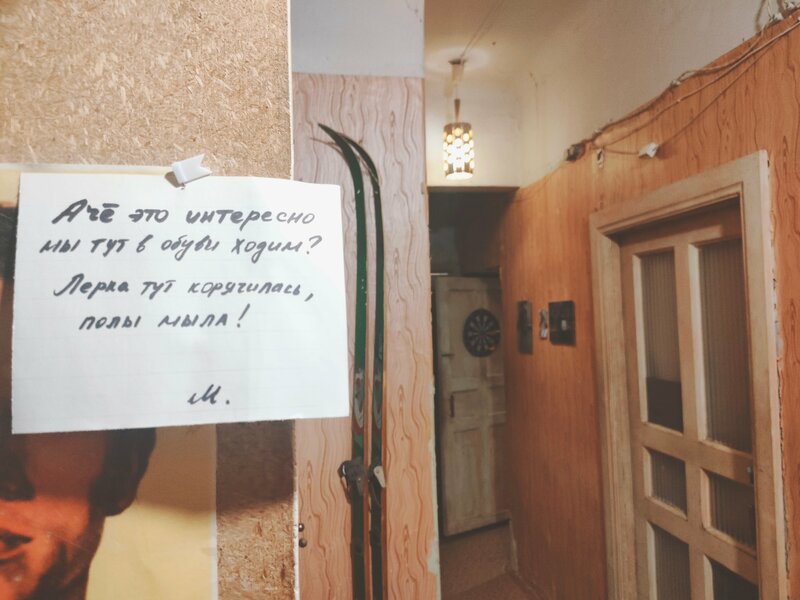 А чё это интересно
мы тут в обуви ходим?
Лерка тут корячилась,
полы мыла!
М.